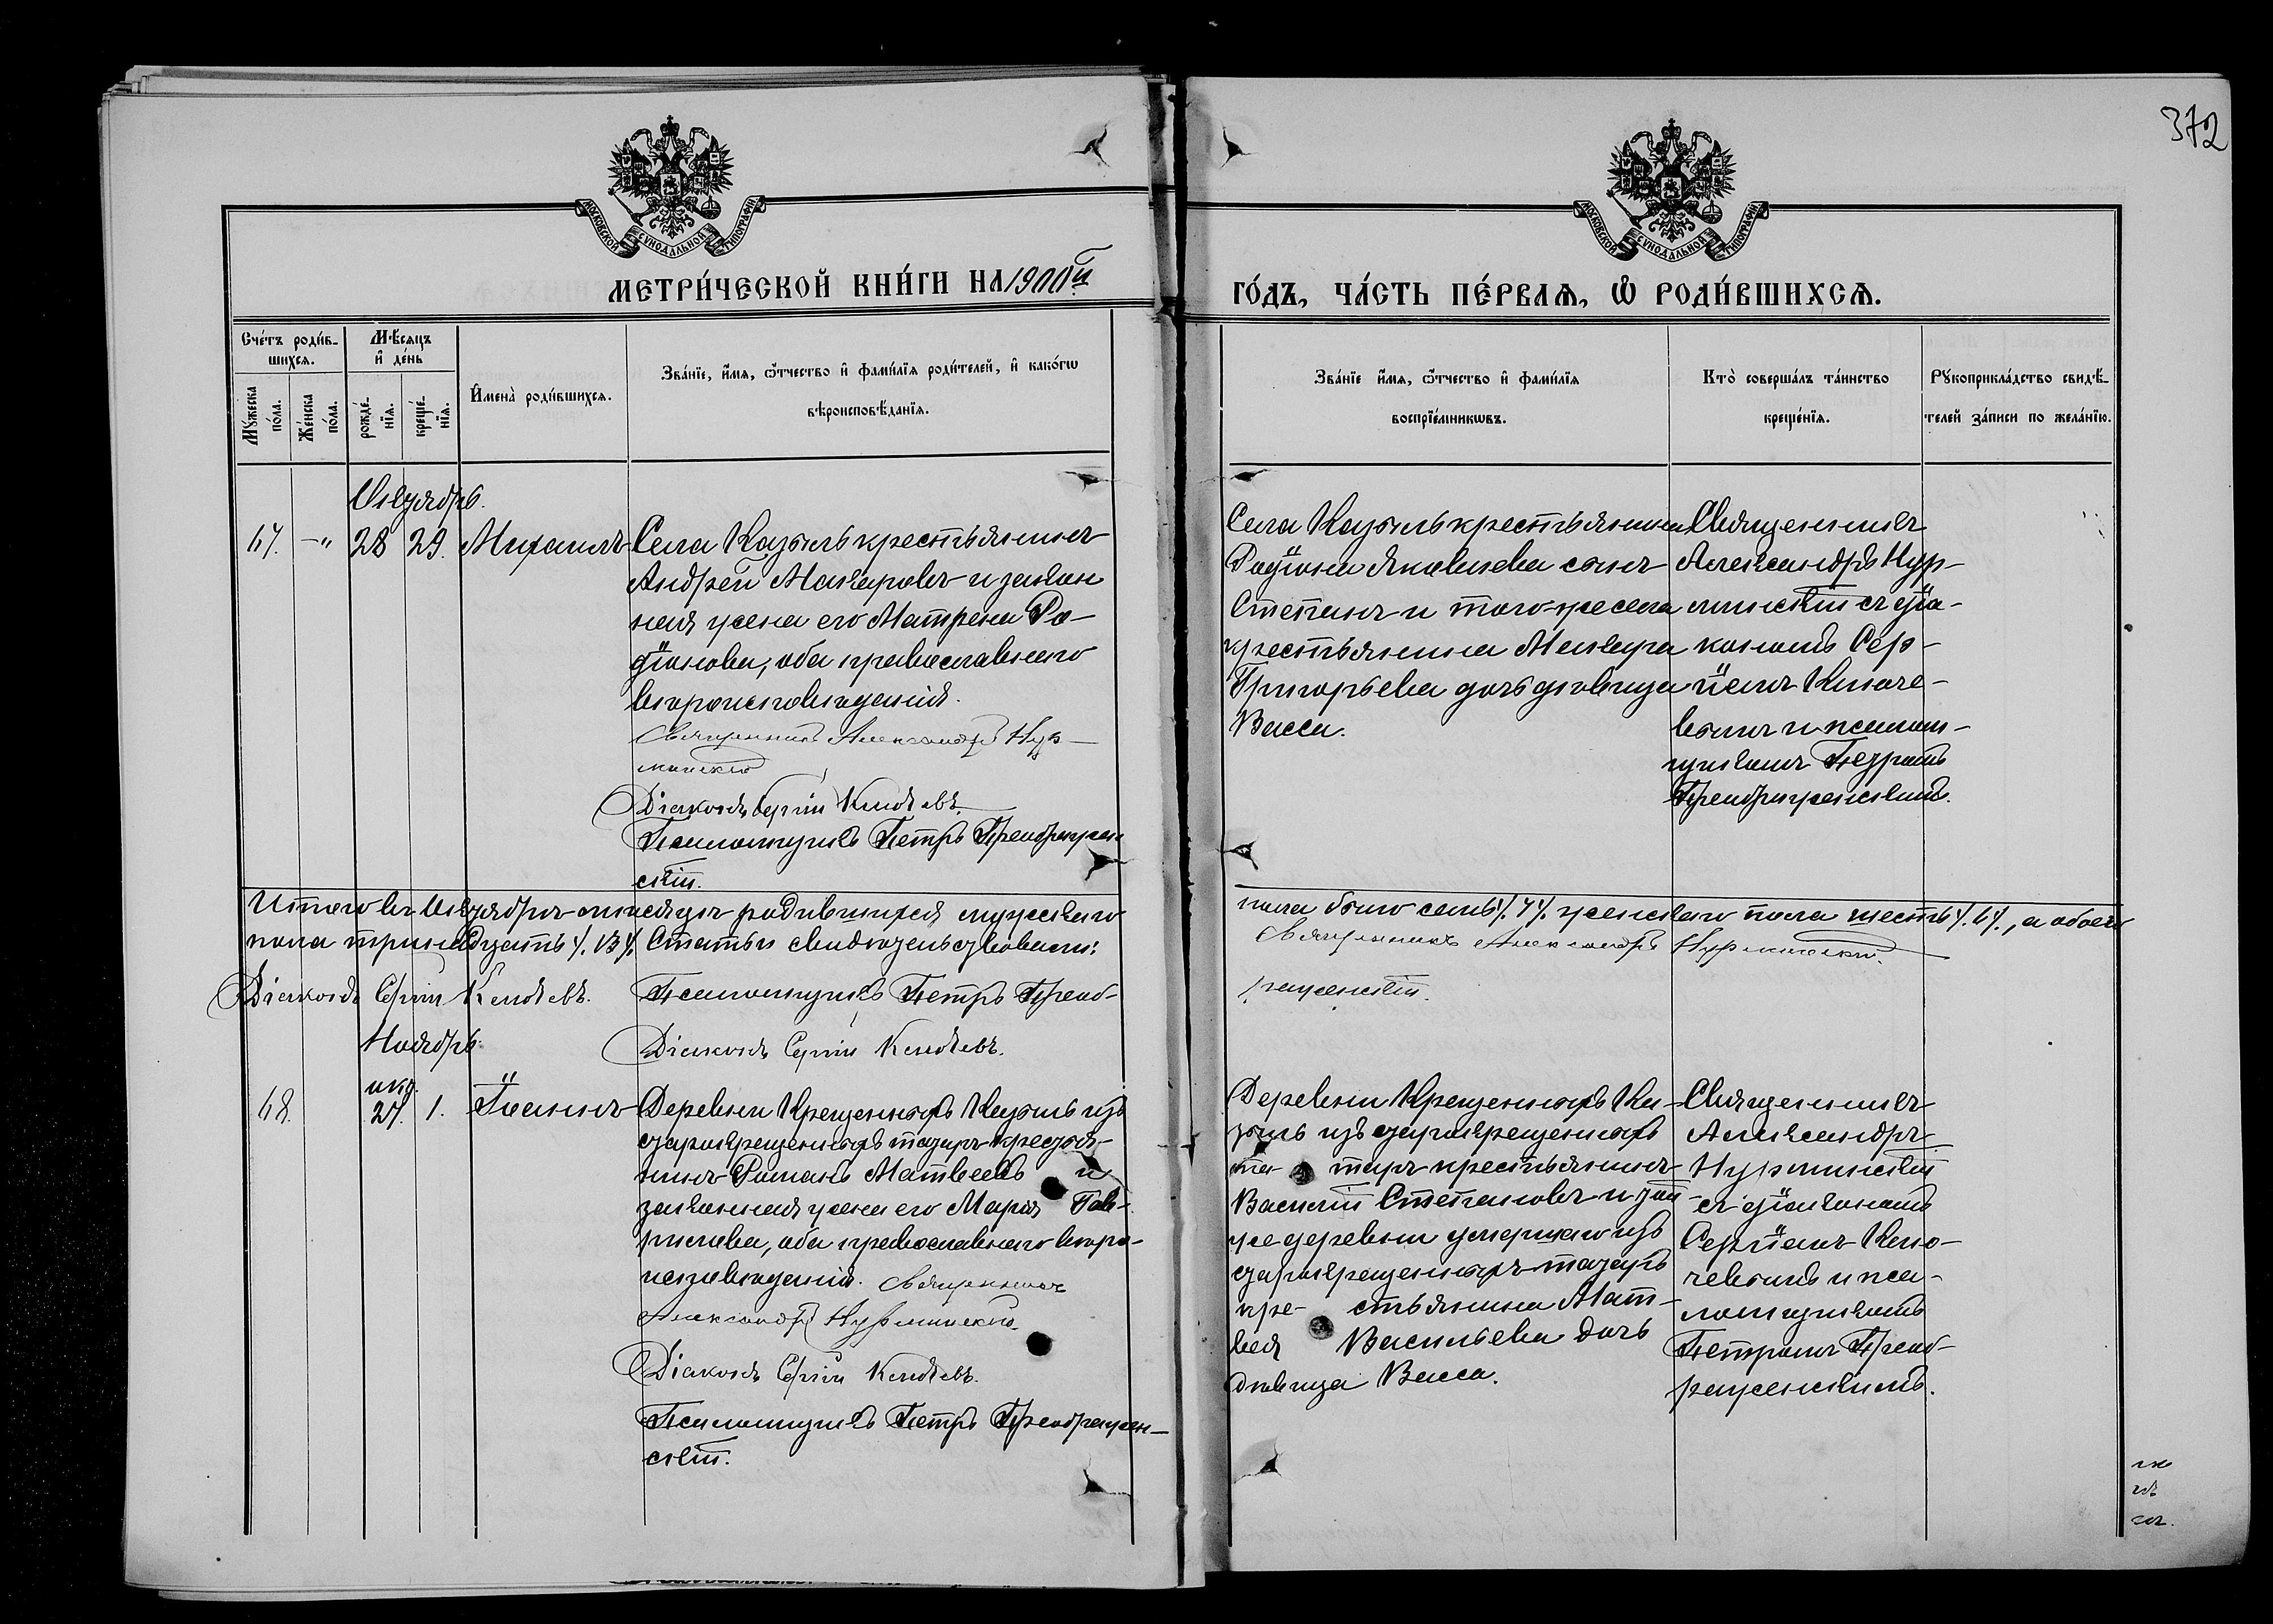 372
МОСКОВСКОЙ СѴНОДАЛЬНОЙ ТИПОГРАФІИ
МОСКОВСКОЙ СѴНОДАЛЬНОЙ ТИПОГРАФІИ
МЕТРИ́ЧЕСКОЙ КНИ́ГИ НА 1900й
ГО́ДЪ, ЧА́СТЬ ПЕ́РВАѦ, Ѡ҆ РОДИ́ВШИХСѦ.
Сче́тъ роди́в-
шихсѧ.
Мѣ́сѧцъ
и҆ де́нь
Мꙋ́жеска
по́ла.
Же́нска
по́ла.
рожде́-
нїѧ.
креще́-
нїѧ.
И҆мена̀ роди́вшихсѧ.
Зва́нїе, и҆́мѧ, ѻ҆́тчество и҆ фами́лїѧ роди́телей, и҆ како́гѡ
вѣроисповѣ́данїѧ.
Зва́нїе и҆́мѧ, ѻ҆́тчество и҆ фами́лїѧ
воспрїе́мникѡвъ.
Кто̀ соверша́лъ та́инство
креще́нїѧ.
Рꙋкоприкла́дство свидѣ́-
телей за́писи по жела́нїю.
Октябрь.
67. -„ 28 29. Михаилъ
Села Казыль крестьянинъ
Андрей Макаровъ и закон
ная жена его Матрена Ро-
діонова, оба православнаго
вѣроисповѣданія.
Священникъ Александръ Нур-
минскій
Діаконъ Сергій
Псаломщикъ Петръ Преображен
скій.
Села Казыль крестьянина
Родіона Яковлева сынъ
Степанъ и того-же села
крестьянина Макара
Григорьева дочь дѣвица
Васса.
Священникъ
Александръ Нур-
минскій съ діа-
кономъ Сер-
гіемъ
и псалом-
щикомъ Петромъ
Преображенскимъ.
Итого въ Октябрѣ мѣсяцѣ родившихся мужскаго
пола было семь /.7/. женскаго пола шесть /.6/., а обоего
пола тринадцать /.13/. Статьи свидѣтельствовали:
Священникъ Александръ Нурминскій.
Діаконъ Сергій
Псаломщикъ Петръ Преоб-
раженскій.
Ноябрь.
Діаконъ Сергій
68. окт. 27. 1. Іоаннъ
Деревни Крещеныхъ Казыль изъ
старокрещеныхъ татаръ крестья-
нинъ Романъ Матвеевъ и
законная жена его Марія Гав-
рилова, оба православнаго вѣро-
исповѣданія. Священникъ
Александръ Нурминскій.
Діаконъ Сергій
Псаломщикъ Петръ Преображен-
скій.
Деревни Крещеныхъ Ка-
зыль изъ старокрещеныхъ
та- таръ крестьянинъ
Василій Степановъ и той-
же деревни умершаго изъ
старокрещеныхъ татаръ
кре- стьянина Мат-
вея Васильева дочь
дѣвица Васса.
Священникъ
Александръ
Нурминскій
съ діакономъ
Сергіемъ
и пса-
ломщикомъ
Петромъ Преоб-
раженскимъ.